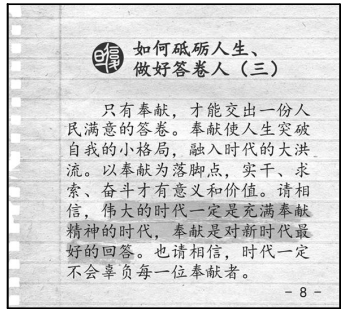 如何砥砺人生、
做好答卷人（三）
只有奉献，才能交出一份人
民满意的答卷。奉献使人生突破
自我的小格局，融入时代的大洪
流。以奉献为落脚点，实干、求
索、奋斗才有意义和价值。请相
信，伟大的时代一定是充满奉献
精神的时代，奉献是对新时代最
好的回答。也请相信，时代一定
不会辜负每一位奉献者。
- 8 -